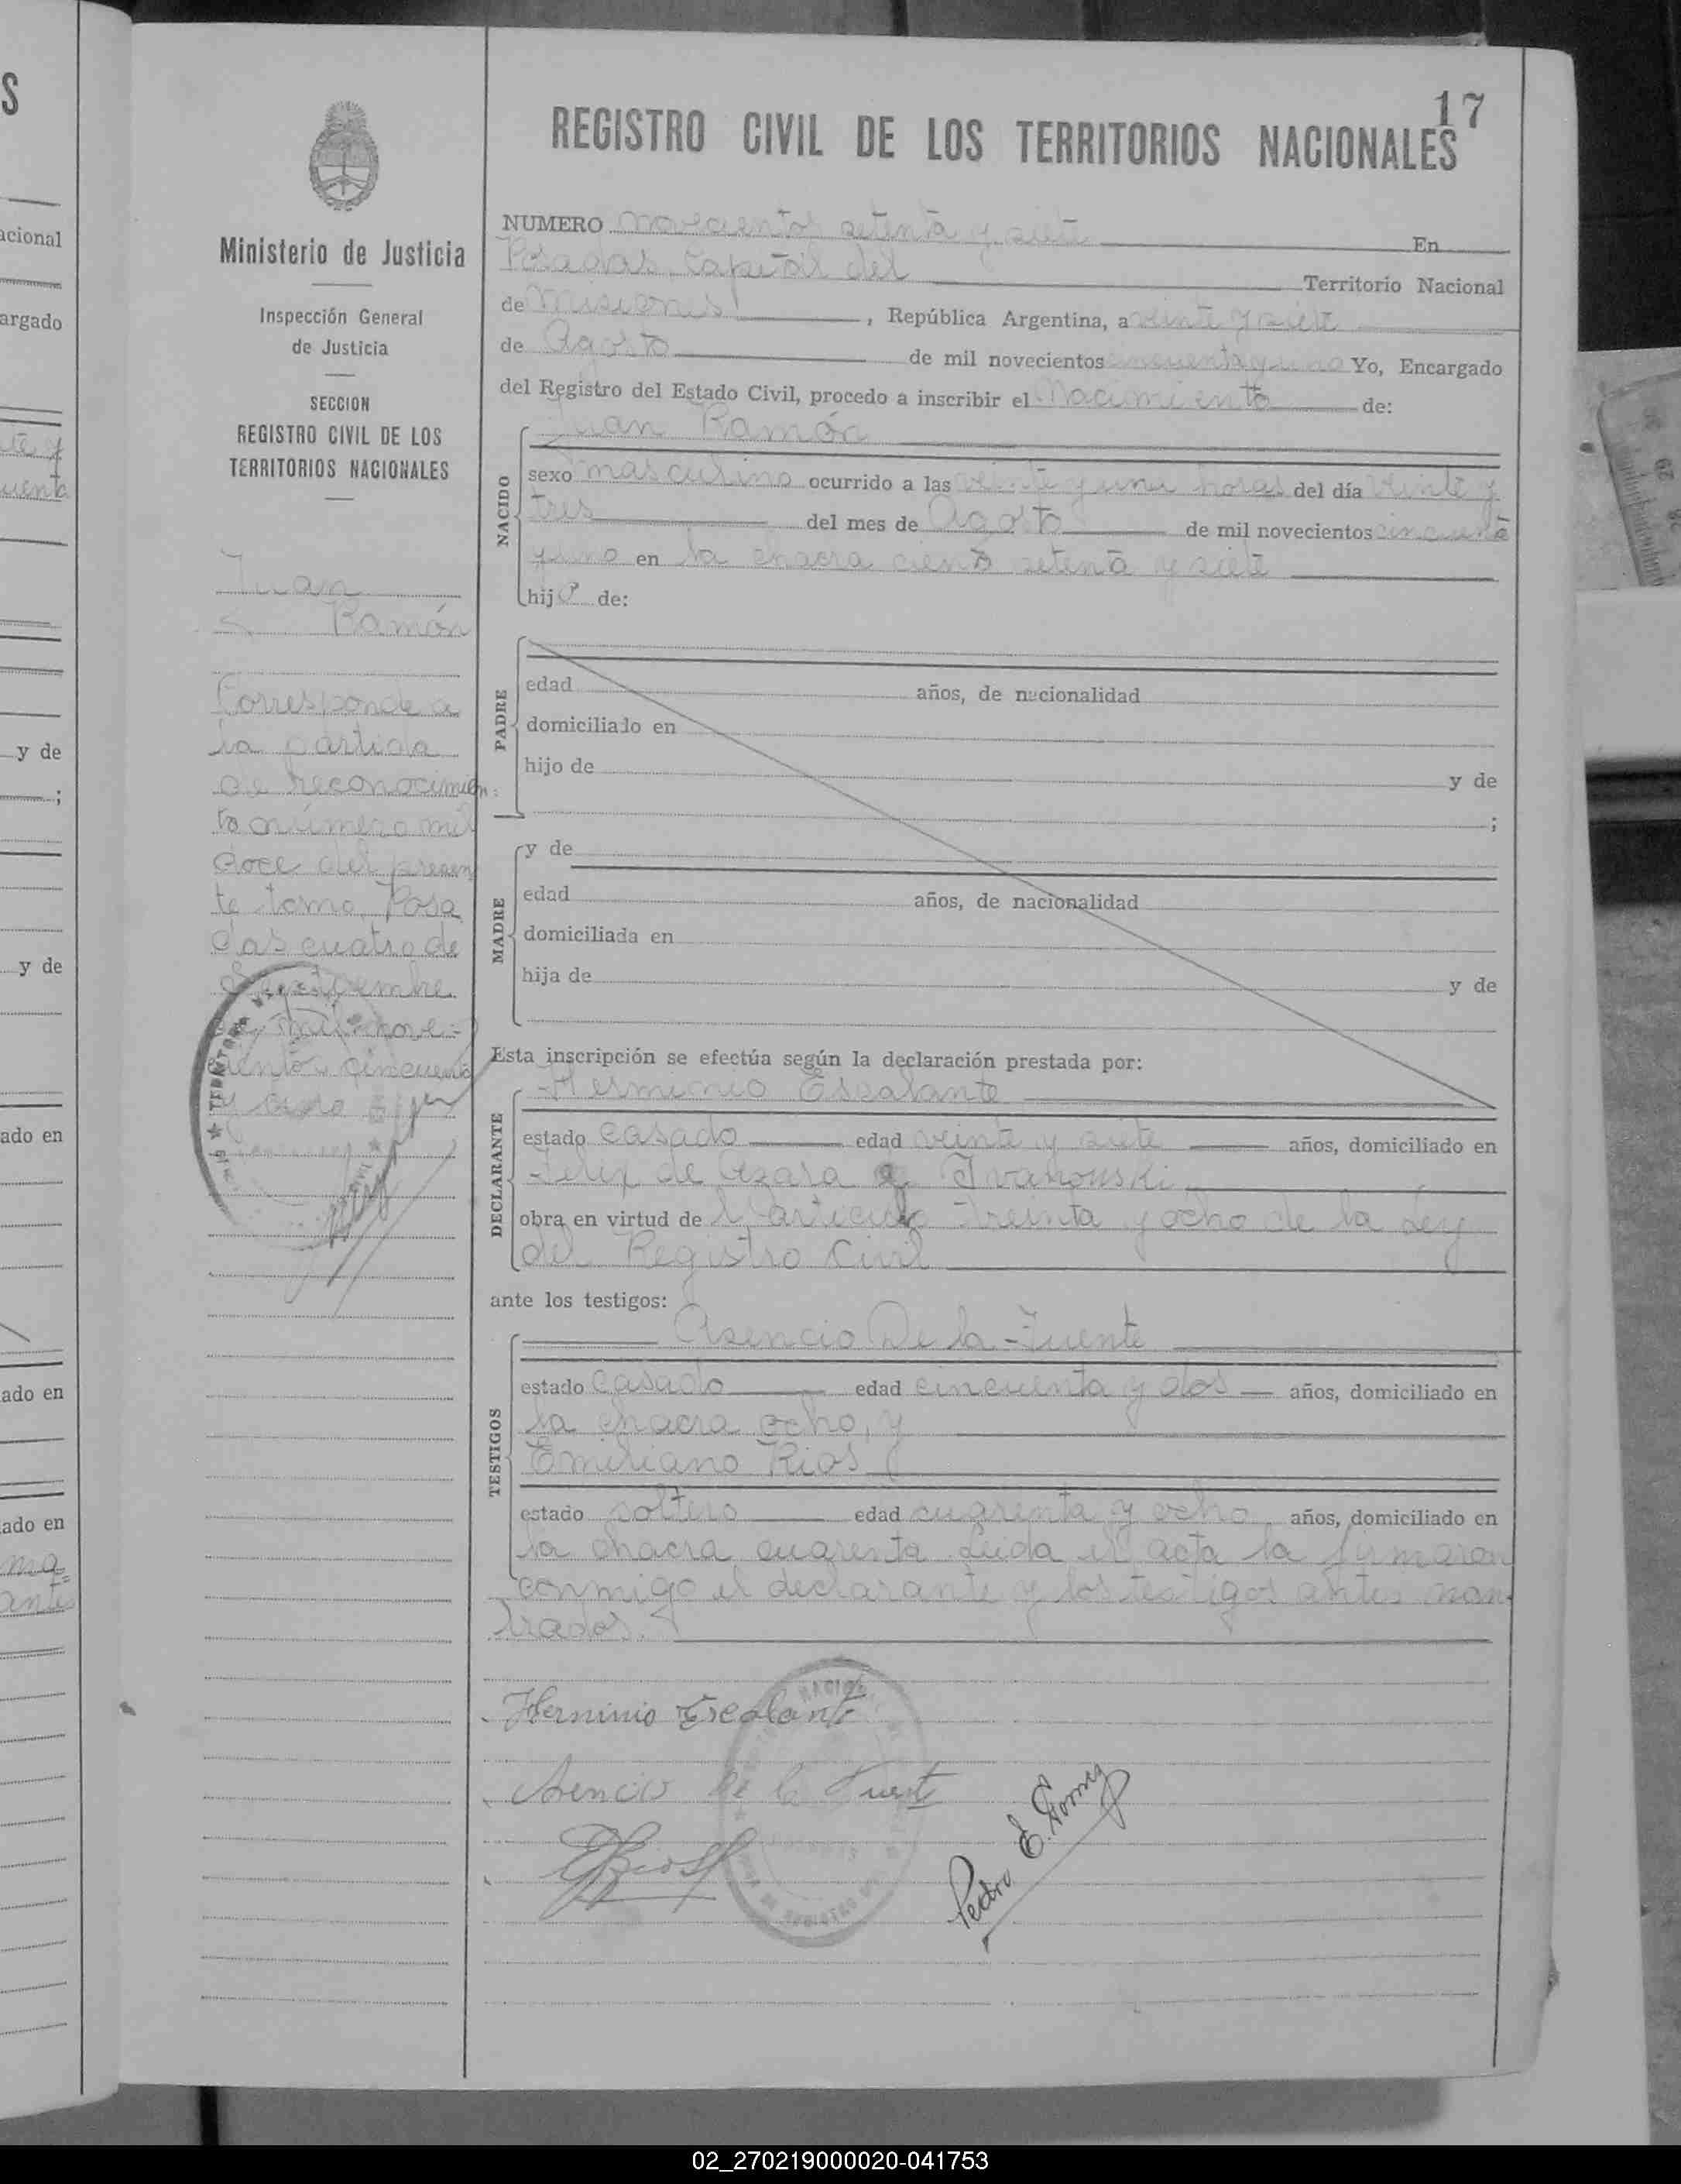 17
REGISTRO CIVIL DE LOS TERRITORIOS NACIONALES
Ministerio de Justicia
Inspección General
de Justicia
SECCION
REGISTRO CIVIL DE LOS
TERRITORIOS NACIONALES
Juan
Ramón
Corresponde a
la partida
de reconocimien:
to número mil
doce del presen
te tomo, Posa
das cuatro de
Septiembre
de mil nove-
cientos cincuenta
y uno
NUMERO novecientos setenta y siete En
Posadas, Capital del Territorio Nacional
de Misiones, República Argentina, a veinte y siete
de Agosto de mil novecientos cincuenta y uno Yo, Encargado
del Registro del Estado Civil, procedo a inscribir el Nacimiento de:
NACIDO
Juan Ramón
sexo masculino ocurrido a las veinte y una horas del día veinte y
tres del mes de Agosto de mil novecientos cincuenta
y uno en la chacra ciento setenta y siete
hijo de:
PADRE
edad años, de nacionalidad
domiciliado en
hijo de y de
;
MADRE
y de
edad años, de nacionalidad
domiciliada en
hija de y de
Esta inscripción se efectúa según la declaración prestada por:
DECLARANTE
Herminio Escalante
estado casado edad veinte y siete años, domiciliado en
Felix de Azara e Ivanouski
obra en virtud del articulo treinta y ocho de la Ley
del Registro Civil
ante los testigos:
TESTIGOS
Asencio De la Fuente
estado casado edad cincuenta y dos años, domiciliado en
la chacra ocho, y
Emiliano Rios
estado soltero edad cuarenta y ocho años, domiciliado en
la chacra cuarenta. Leida el acta la firmaron
conmigo el declarante y los testigos antes nom
brados.
Herminio Escalante
Asencio de la Fuente
ERios
Pedro E. Gomez
acional
argado
y de
;
y de
ado en
ado en
ado en
02_270219000020-041753